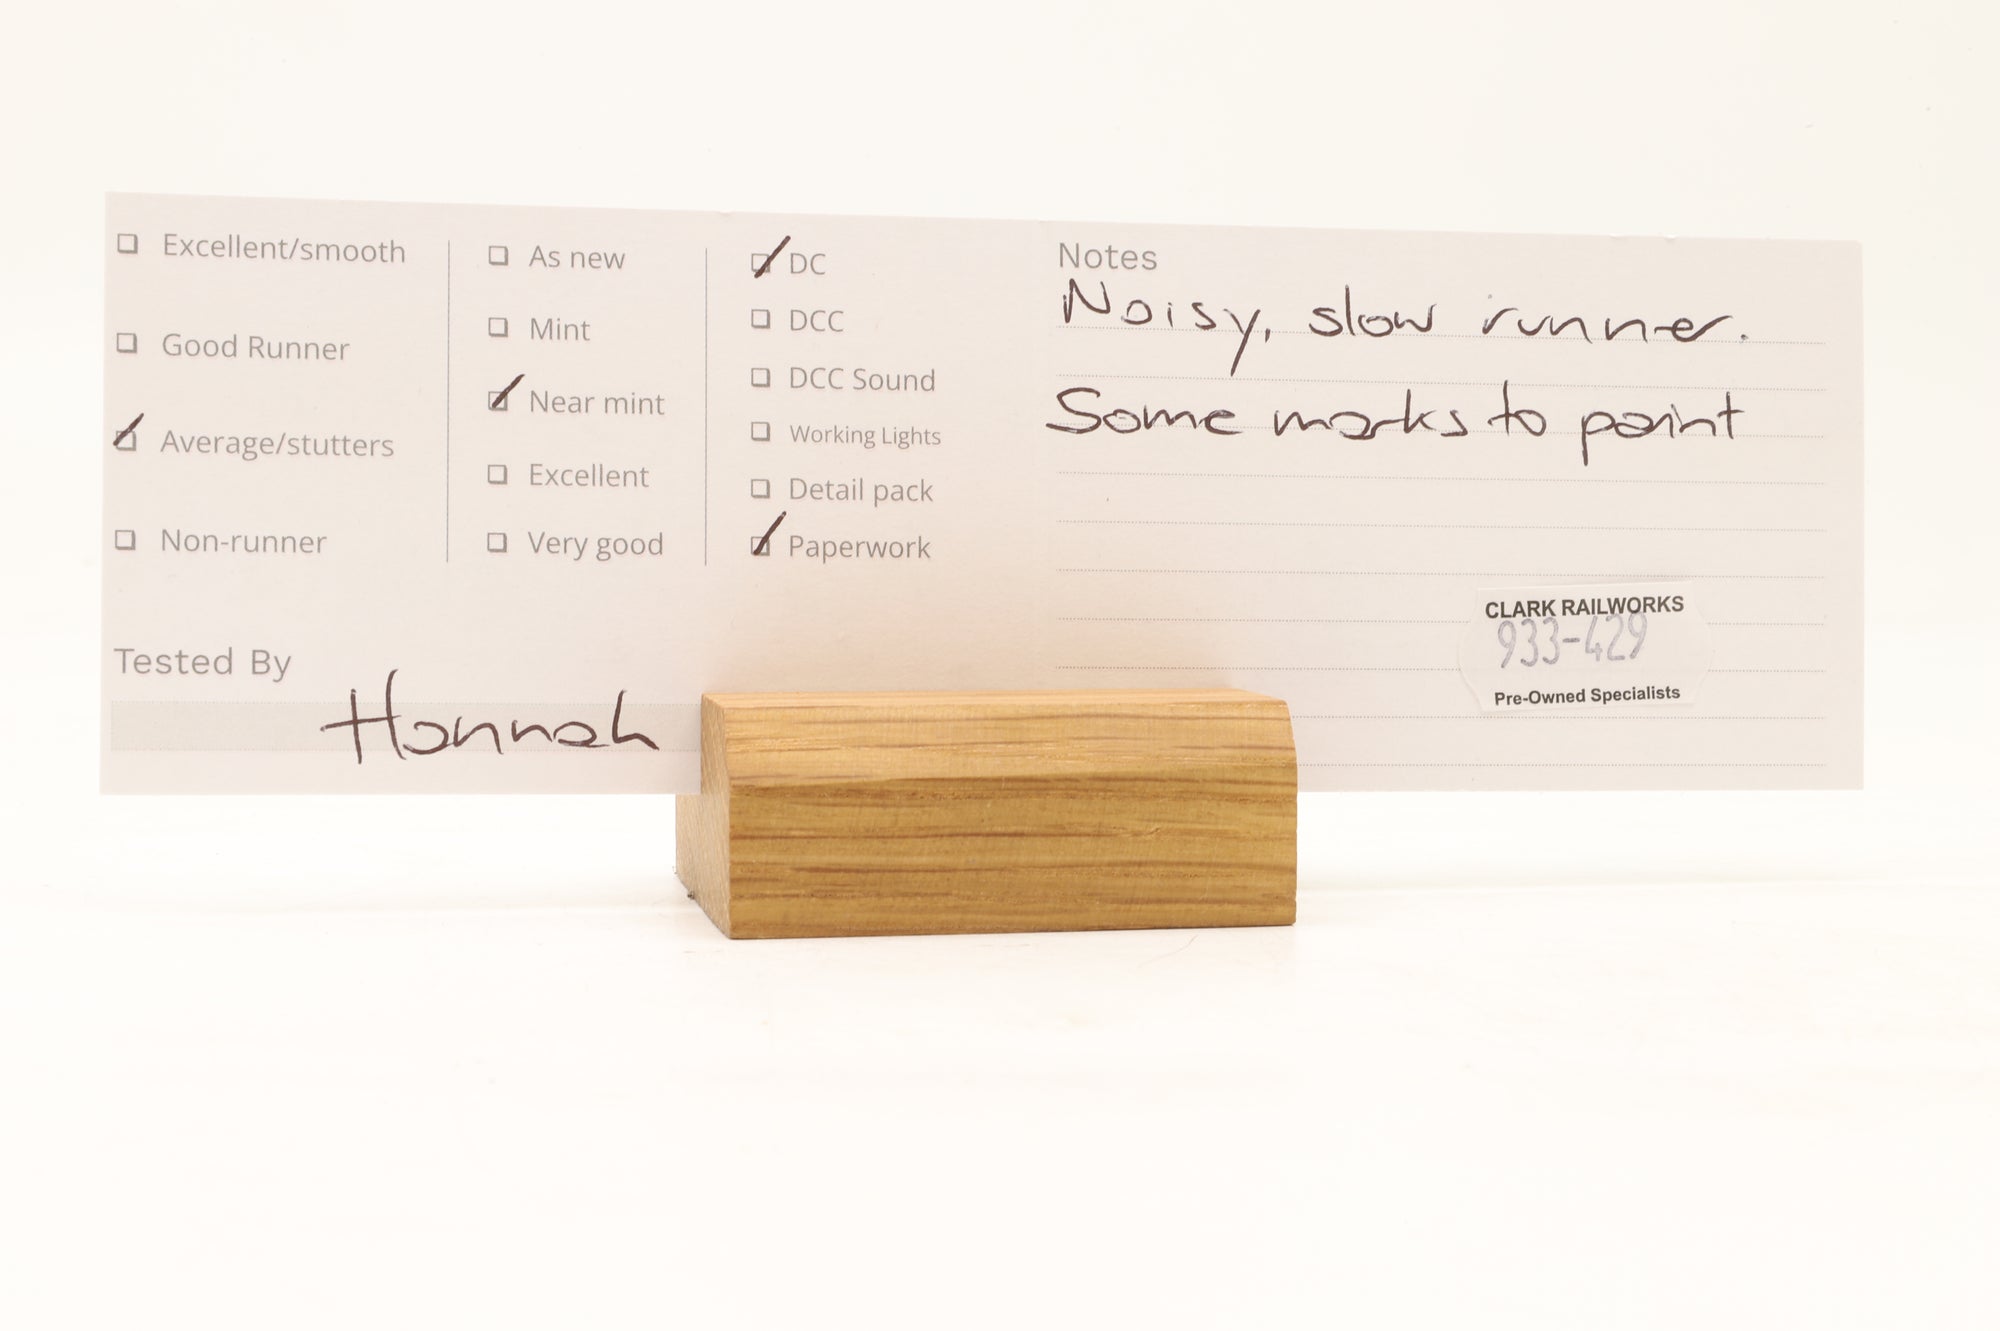 Excellent/smooth
Good Runner
Average/stutters
Non-runner
As new
Mint
Near mint
Excellent
Very good
DC
DCC
DCC Sound
Working Lights
Detail pack
Paperwork
Tested By
Hannah
Notes
Noisy, slow runner.
Some marks to paint
CLARK RAILWORKS
933-429
Pre-Owned Specialists